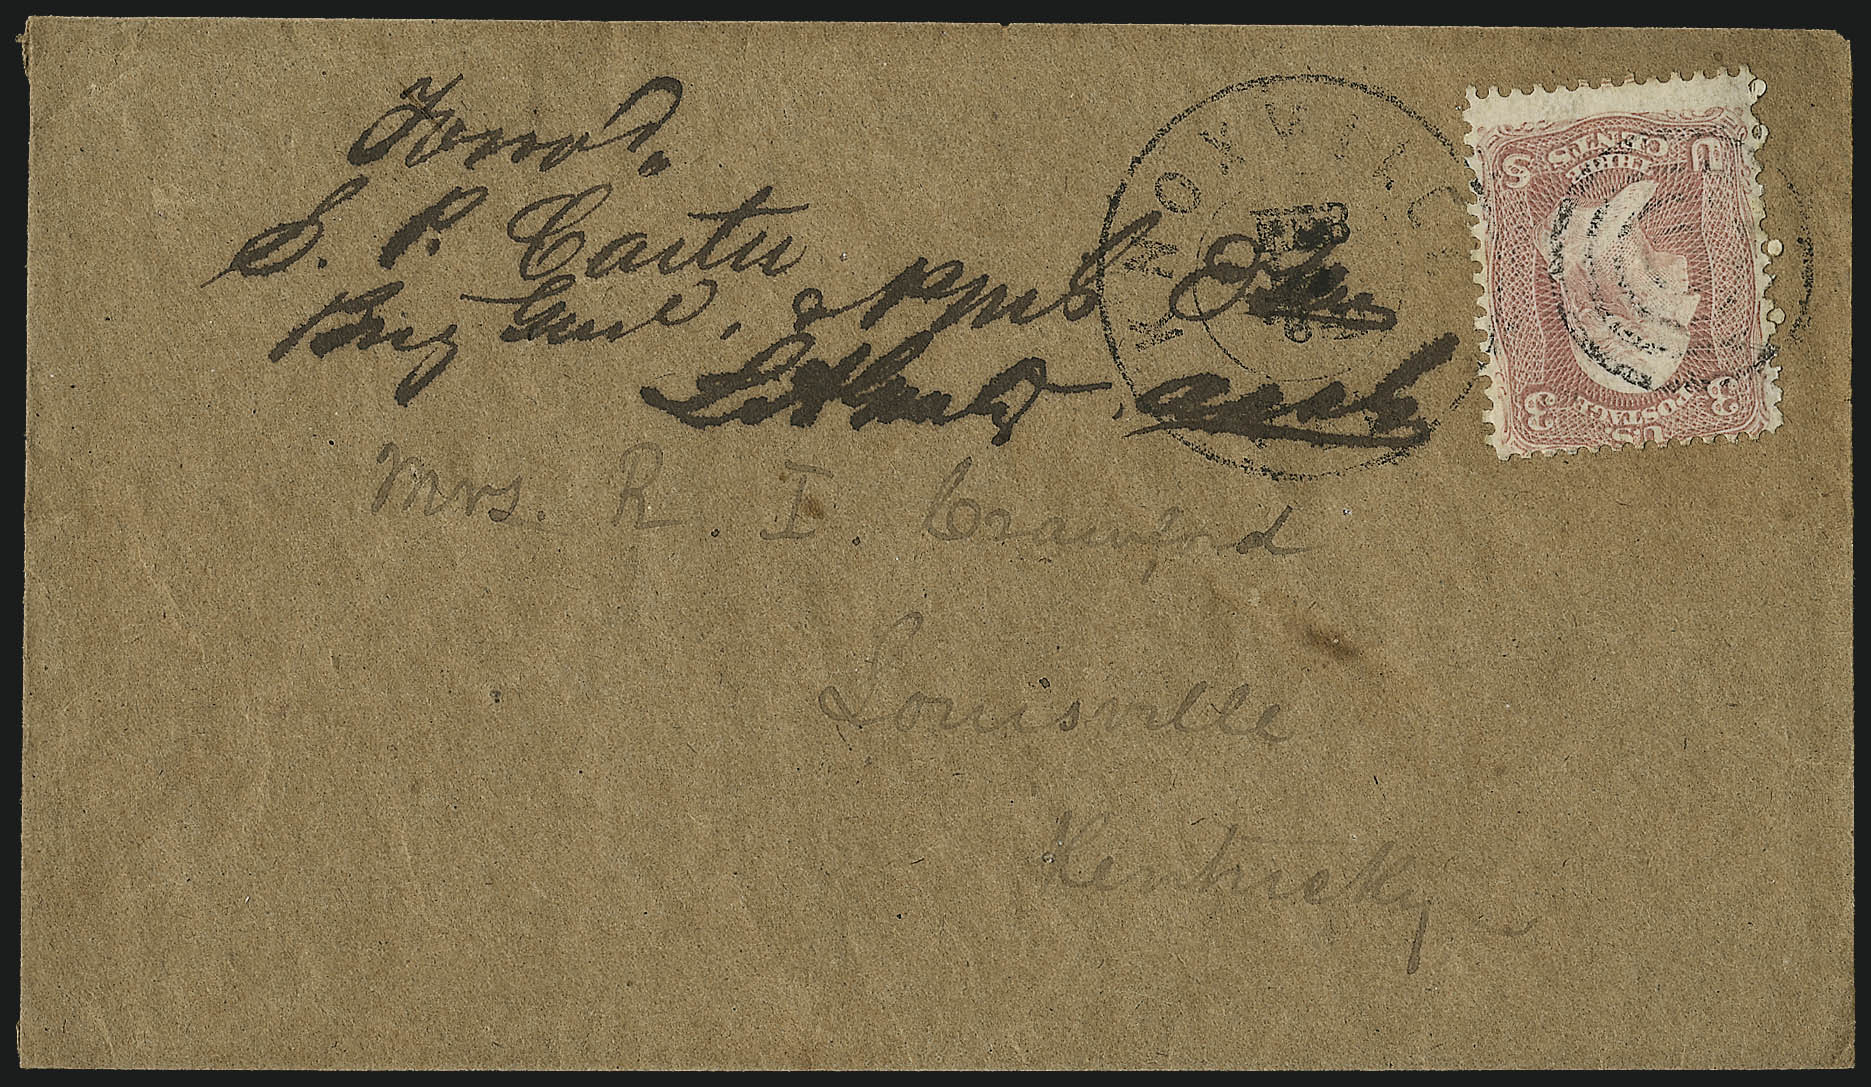 Forwd.
S. P. Carter
Brig Genl, & 
Mrs. R. I. Crawford
Louisville
Kentucky
KNOXVILLE
THREE CENTS
U S
3 3
US POSTAGE